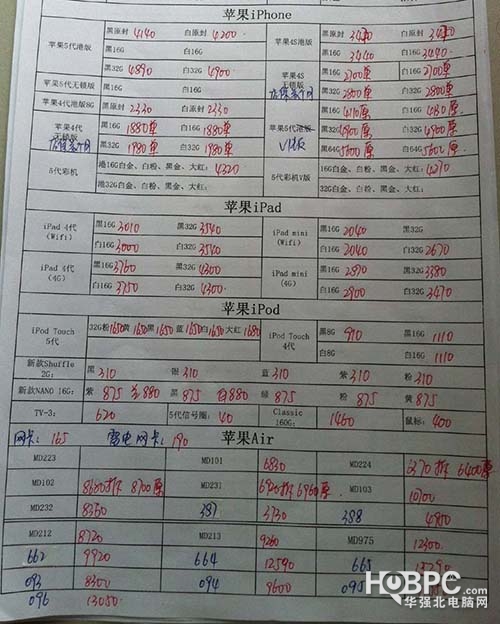 苹果iPhone
苹果5代港版 黑原封 4140 白原封 4200 苹果4S港版 黑原封 白原封
黑16G 白16G 黑16G 3440 白16G 3440
黑32G 4890 白32G 4900 苹果4S 无锁版 黑16G 2700单 白16G 2700单
苹果5代无锁版 黑16G 白16G 黑32G 2800单 白32G 2800单
苹果4代港版8G 黑 2330 白 2330 苹果5代港版 V版 黑16G 4110原 白16G 4130原
苹果4代 无锁版 黑16G 1880单 白16G 1880单 黑32G 4900原 白32G 4900原
黑32G 1980单 白32G 1980单 黑64G 5600原 白64G 5600原
5代彩机 港16G白金、白粉、黑金、大红: 4320 5代彩机V版 16G白金、白粉、黑金、大红: 4270
32G白金、白粉、黑金、大红: 32G白金、白粉、黑金、大红:
苹果iPad
iPad 4代 (Wifi) 黑16G 3010 黑32G 3540 iPad mini (Wifi) 黑16G 2040 黑32G
白16G 3000 白32G 3540 白16G 2040 白32G 2670
iPad 4代 (4G) 黑16G 3760 黑32G 4300 iPad mini (4G) 黑16G 2870 黑32G 3380
白16G 3750 白32G 4300 白16G 2900 白32G 3470
苹果iPod
iPod Touch 5代 32G粉 1650 黄 1650 黑 1650 蓝 1650 白 1650 大红 1680 iPod Touch 4代 黑8G 910 黑16G 1110
白8G 白16G 1110
新款Shuffle 2G: 黑 310 银 310 蓝 310 紫 310 粉 310
新款NANO 16G: 紫 875 880 黑 875 白 880 绿 875 粉 875 黄 875
TV-3: 620 5代信号圈: 40 Classic 160G: 1460 鼠标: 400
网卡: 165 雷电网卡: 190 苹果Air
MD223 MD101 6830 MD224 6370拆 6400原
MD102 8680拆 8700原 MD231 6920拆 6960原 MD103 10700
MD232 8350 387 3730 388 4950
MD212 8720 MD213 9260 MD975 12300
662 9920 664 12590 665
093 8300 094 9600 095
096 13050
HQBPC.com
华强北电脑网